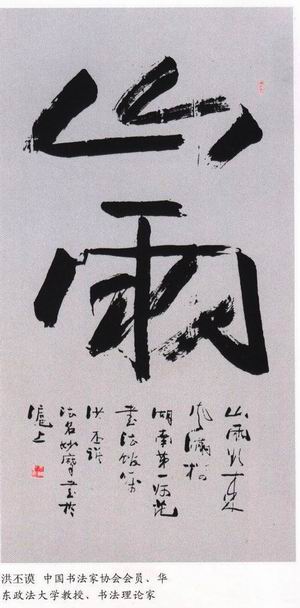 山雨
山雨欲来
风满楼
湖南第一师范
書法
洪丕谟
法名妙摩書於
滬上
洪丕谟 中国书法家协会会员、华
东政法大学教授、书法理论家